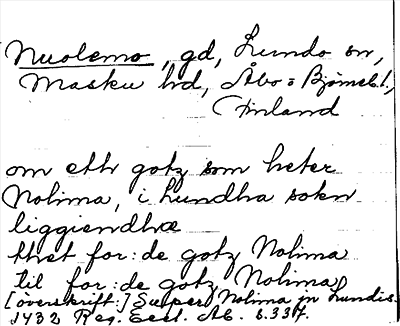 Nuolemo, gd, Lundo sn,
Masku hd, Åbo = Björneb. l.,
Finland
om ett gotz som heter
Nolima, i Lundha sokn
liggiendhæ
thet for:de gotz Nolima
til for:de gotz Nolima
[överskrift:] Super Nolima jn Lundis.
1432 Reg. Eccl. Ab. s. 337.